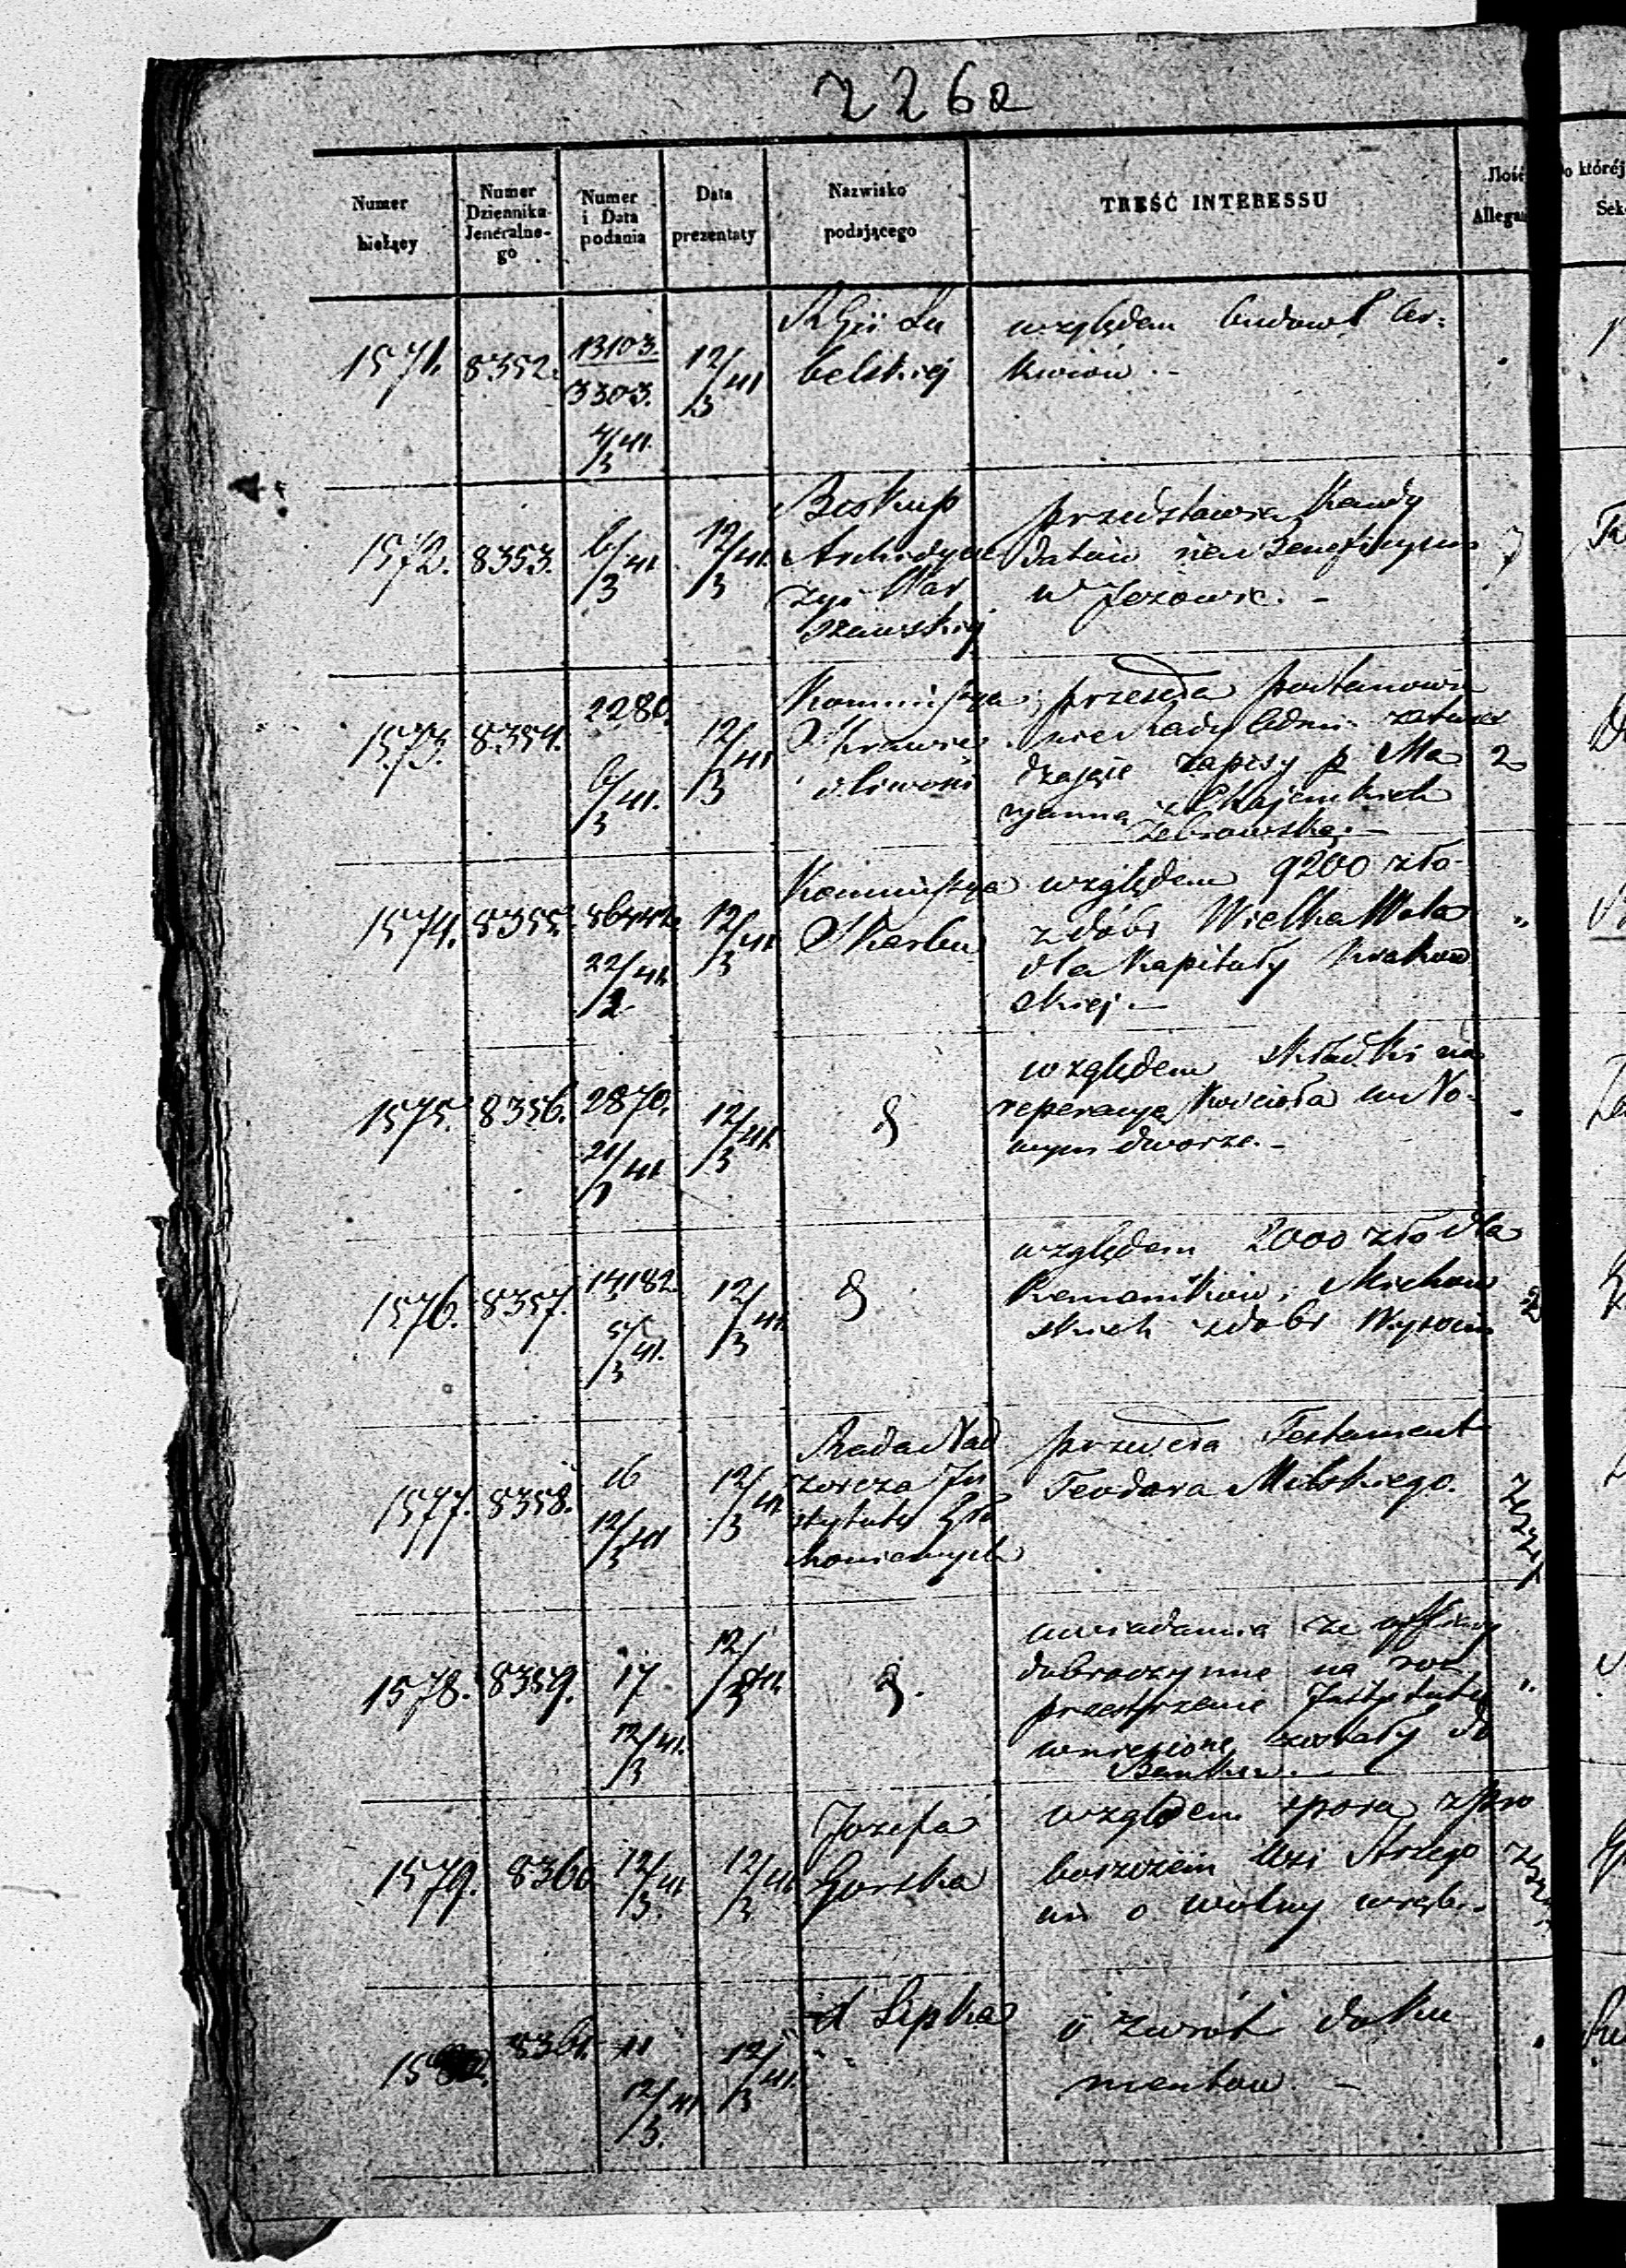 226a
Numer bieżący
Numer Dziennika Jeneralnego
Numer i Data podania
Data prezentaty
Nazwisko podającego
TREŚĆ INTERESSU
Ilość Allega
o któréj Sek
1571. 8352. 13103. 3303. 4/3 41. 12/3 41
R Gji Lu
belskiej
względem budowl Cer=
kwiów. -
1572. 8353. 6/3 41 12/3 41.
Biskup
Archidyec
zyi War
szawskiej
przedstawia Kandy
datów na Beneficyum
w Jeżowie. -
7
1573. 8354. 2280. 6/3 41. 12/3 41
Kommissya
przesyła postanowie
nie Rady Admin: zatwier
dzające zapisy p Ma
ryannę z Chajęckich
Żebrowską. -
2
1574. 8355. 22/2 41. 12/3 41
Kommissya
Skarbu
względem 9200 zło
z dóbr Wielka Wola
dla Kapituły Krakow
skiej. -
"
1575. 8356. 2870. 21/1 41 12/3 41.
względem składki na
reperacyą Kościoła w No-
wym dworze. -
1576. 8357. 14182. 5/3 41. 12/3 41.
względem 2000 zło dla
Kanoników Miechow
skich z dobr Wysocin
1577. 8358. 16 12/3 41 12/3 41
Rada Nad
zorcza In
stytutu Głu
choniemych
przesyła Testament
Teodora Milskiego.
1578. 8359. 17 12/3 41. 12/3 41.
uwiadamia że offiary
dobroczynne na roz
przestrzenie Instytutu
wniesione zostały do
Banku. -
"
1579. 8360 12/3 41 12/3 41
Jozefa
Gorska
względem spora z Pro
boszczem Wsi Strzego
o wolny wręb. -
8361. 11 12/3 41 12/3 41.
A Lipka
o zwrot doku
mentow. -